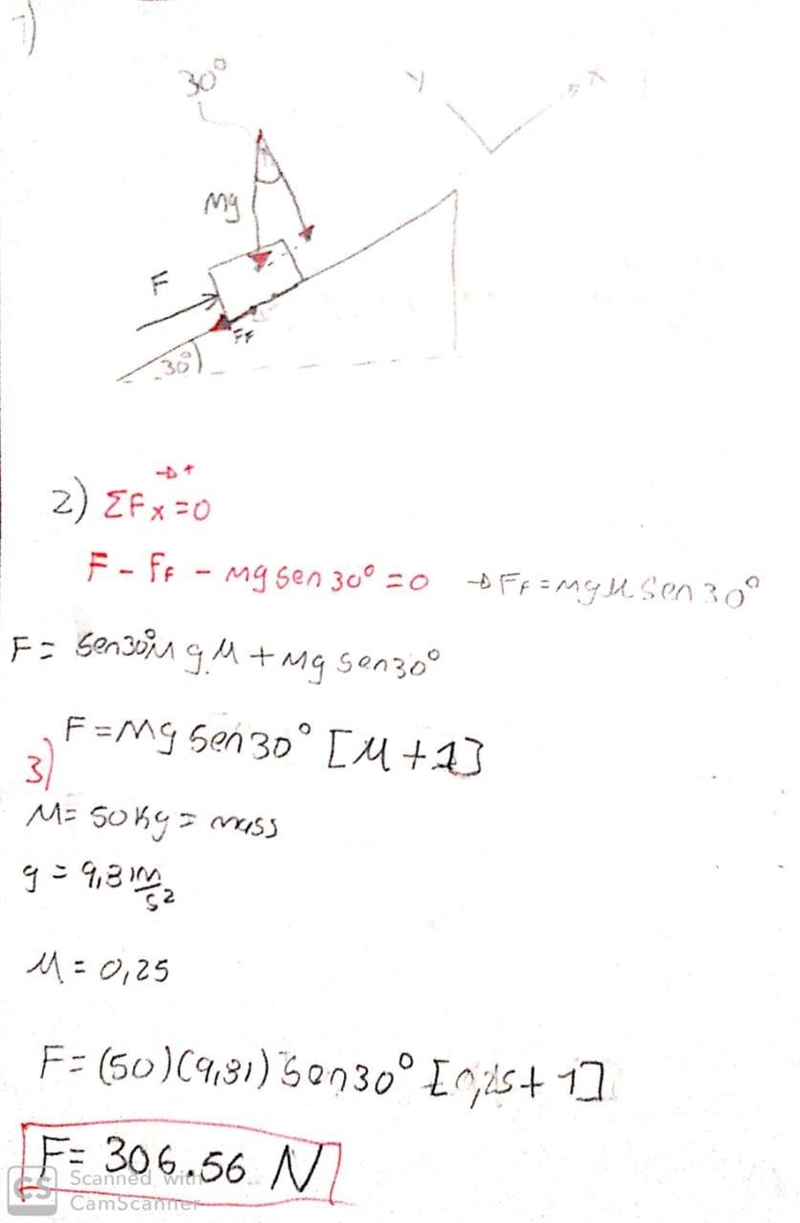 1)
30°
Y X
Mg
F
FF
30°
→ +
2) ΣFx=0
F - FF - Mg sen 30° = 0 → FF = Mg μ sen 30°
F = sen30° M g. μ + Mg sen30°
F = Mg sen 30° [μ + 1]
3)
M = 50 Kg = mass
g = 9,81 m/s²
μ = 0,25
F = (50)(9,81) sen30° [0,25 + 1]
F = 306.56 N
CS Scanned with
CamScanner